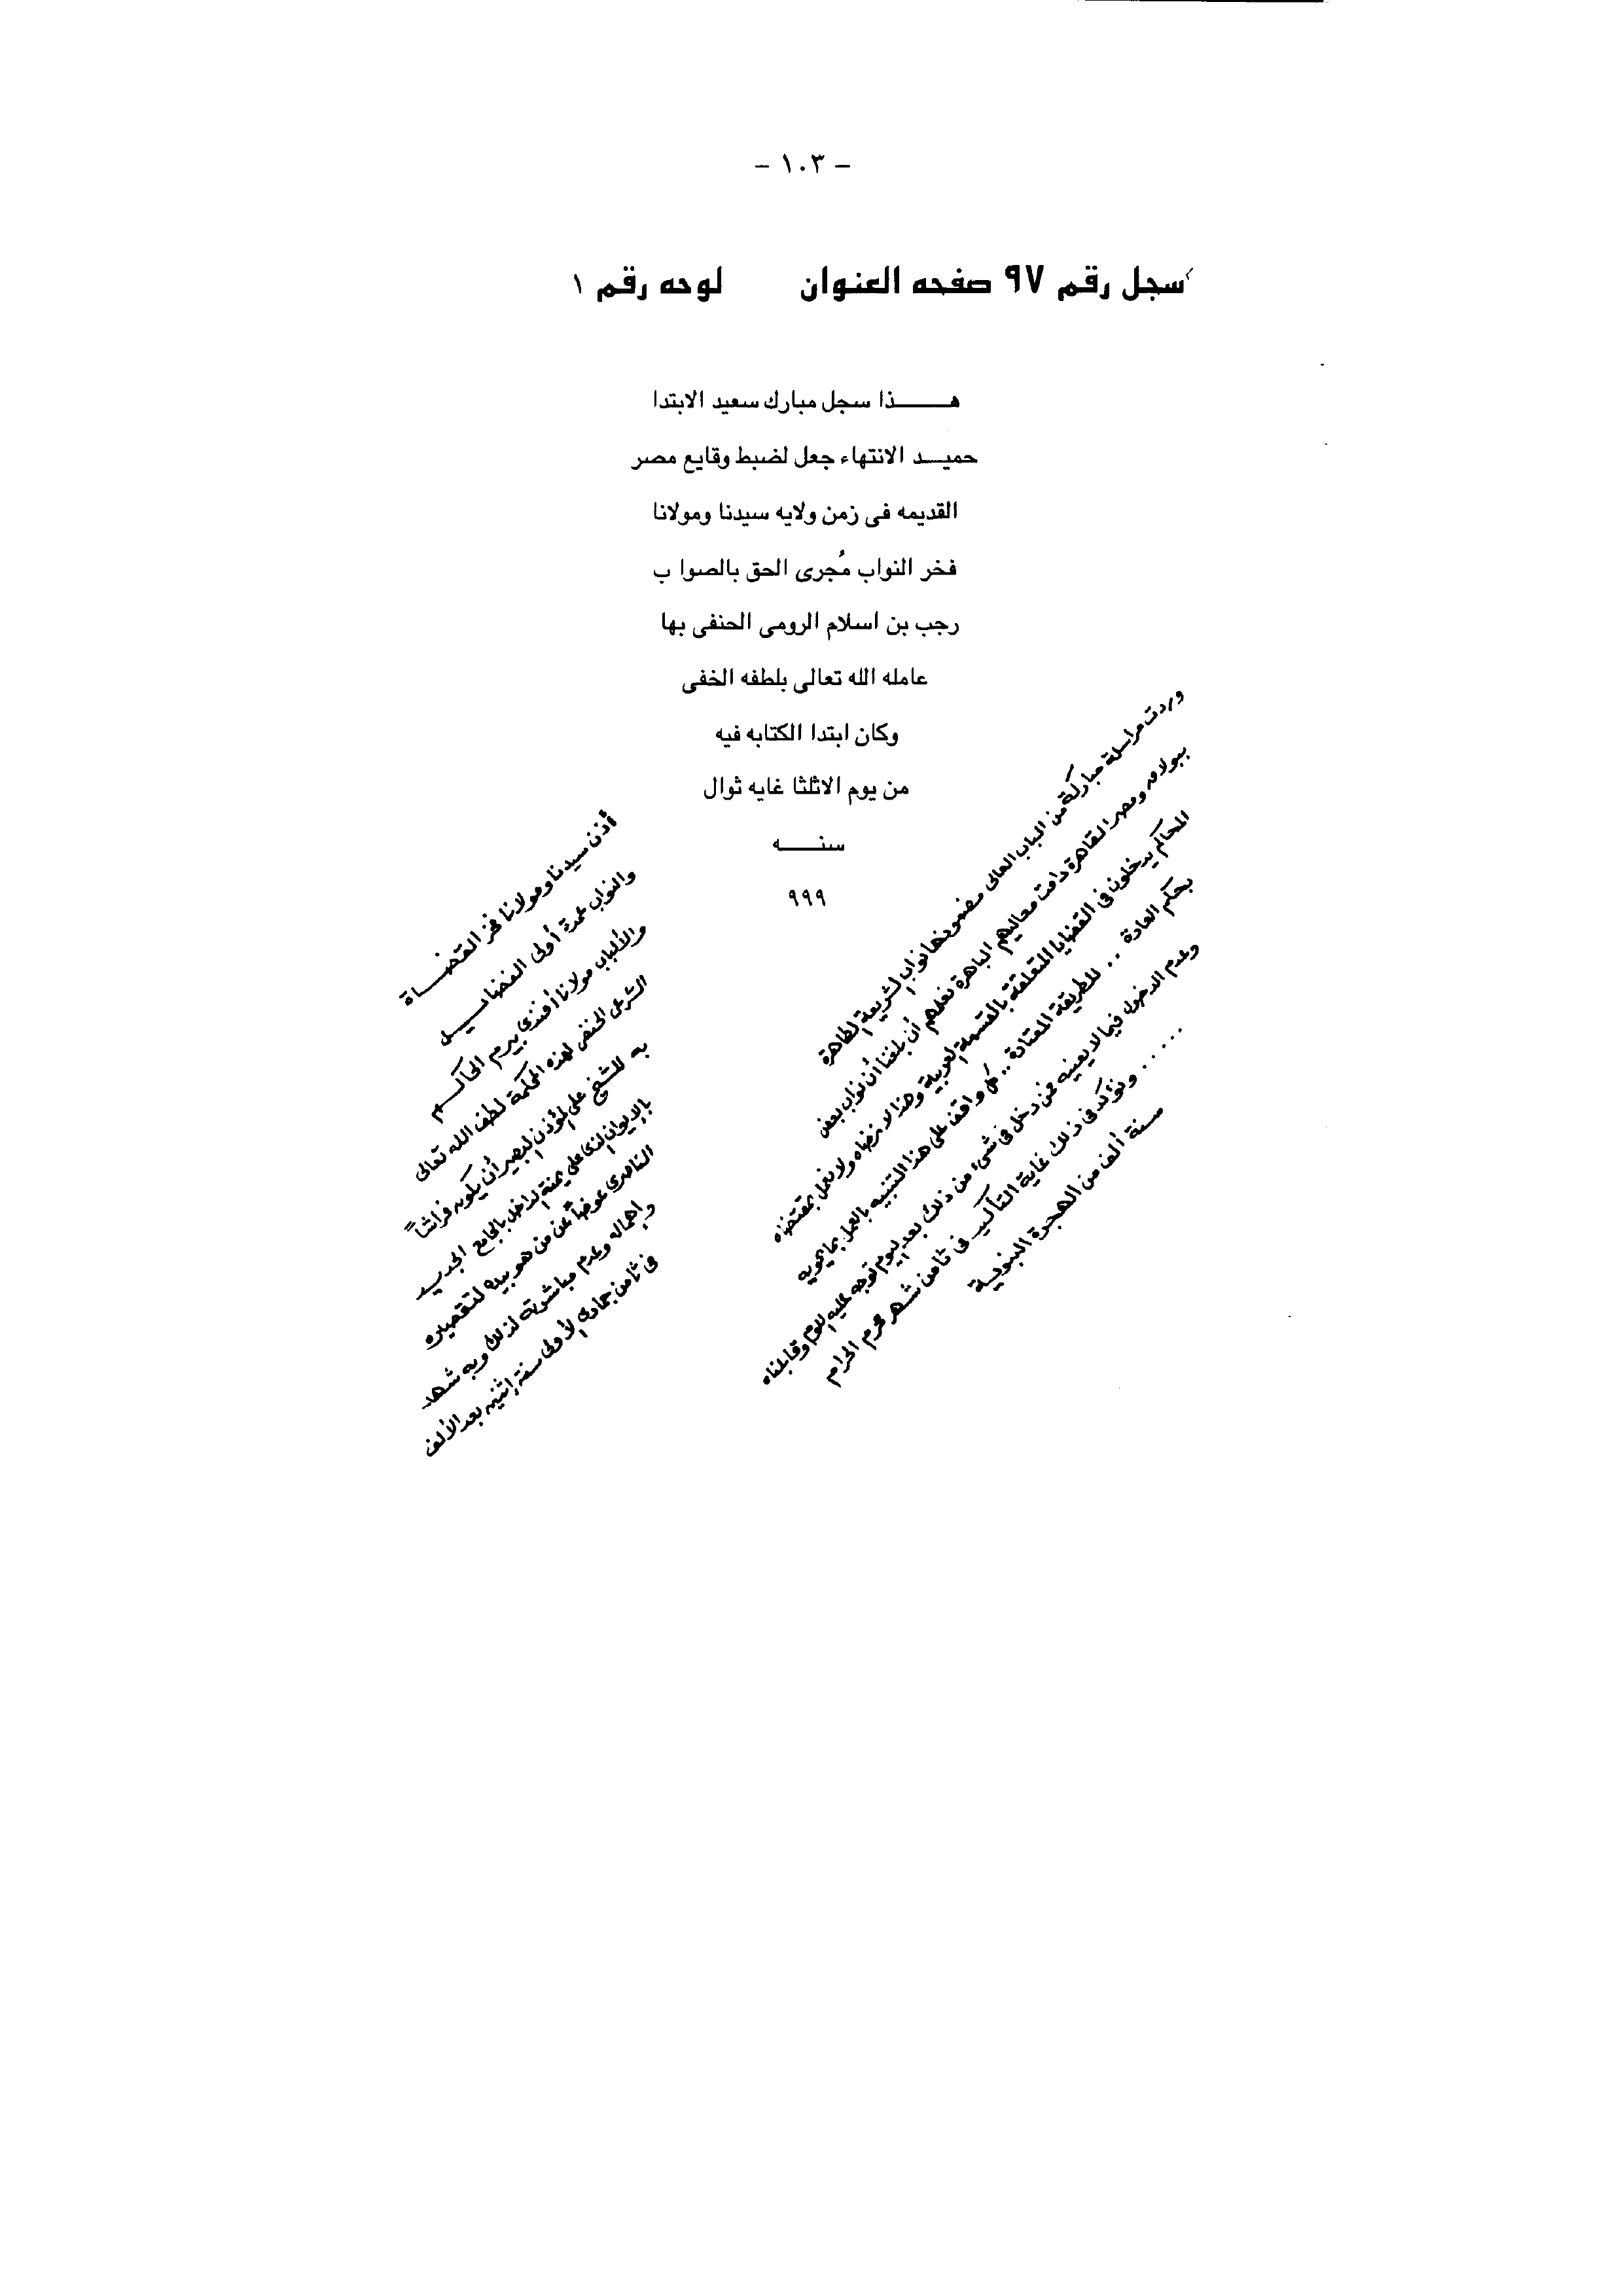 - ١٠٣ -
سجل رقم ٩٧ صفحه العنوان لوحه رقم ١
هـــــذا سجل مبارك سعيد الابتدا
حميـــد الانتهاء جعل لضبط وقايع مصر
القديمه فى زمن ولايه سيدنا ومولانا
فخر النواب مُجرى الحق بالصوا ب
رجب بن اسلام الرومى الحنفى بها
عامله الله تعالى بلطفه الخفى
وكان ابتدا الكتابه فيه
من يوم الاثلثا غايه ثوال
سنـــــه
٩٩٩
وردت مراسلة مباركة من الباب العالى مضمونها نواب الشريعة الطاهرة
ببولاق ومصر القاهرة دامت معاليهم الباهرة نعلمهم أن بلغنا أن نواب بعض
المحاكم يدخلون فى القضايا المتعلقة بالقسمة العربية وهذا لا نرضاه ولا نعمل بمقتضاه
بحكم العادة .. للطريقة المعتادة .. كل واقف على هذا التنبيه بالعمل بما يحويه
وعدم الدخول فيما لا يعنيه فمن دخل فى شىء من ذلك بعد اليوم توجه عليه اللوم وقابلناه
..... ونؤكد فى ذلك غاية التأكيـد فى ثامن شهر محرم الحرام
سنة ألف من الهجرة النبوية
أذن سيدنا ومولانا فخر القضـــاة
والنواب عمدة أولى الفضايـــل
والألباب مولانا أفندى بيرم الحاكـــم
الشرعى الحنفى لهذه المحكمة لطف الله تعالى
به للشيخ على المؤذن البصير أن يكون فراشاً
بالإيوان الذى على يمنة الداخل بالجامع الجديـد
الناصرى عوضاً عن من هو بيده لتقصيره
وإهماله وعدم مباشرته لذلك وبه شهد
فى ثامن جمادى الأولى سنة إثنين بعد الألف